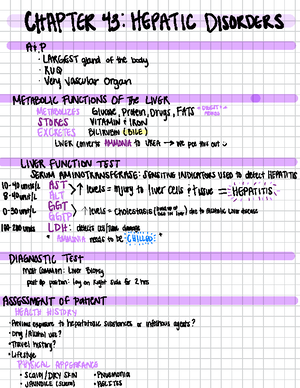 CHAPTER 43: HEPATIC DISORDERS
A+P
• LARGEST gland of the body
• RUQ
• Very vascular Organ
METABOLIC FUNCTIONS OF THE LIVER
METABOLIZES Glucose, Protein, Drugs, FATS
STORES VITAMIN + IRON
EXCRETES BILIRUBIN (BILE)
LIVER CONVERTS AMMONIA to UREA → we pee this out
LIVER FUNCTION TEST
SERUM AMINOTRANSFERASE: SENSITIVE INDICATORS USED to detect HEPATITIS
10-40 units/L AST
8-40 units/L ALT
↑ levels = injury to liver cells + tissue = HEPATITIS
0-30 units/L GGT
GGTP
↑ levels = Cholestasis due to Alcoholic Liver disease
100-200 units LDH: detects cell/tissue damage
* AMMONIA needs to be CHILLED *
DIAGNOSTIC TEST
most common: Liver Biopsy
post op position: lay on Right side for 2 hrs
ASSESSMENT OF PATIENT
HEALTH HISTORY
• Previous exposure to hepatotoxic substances or infectious agents?
• Drug/Alcohol use?
• Travel history?
• Lifestyle
PHYSICAL APPEARANCE
• SCALY/DRY SKIN
• JAUNDICE